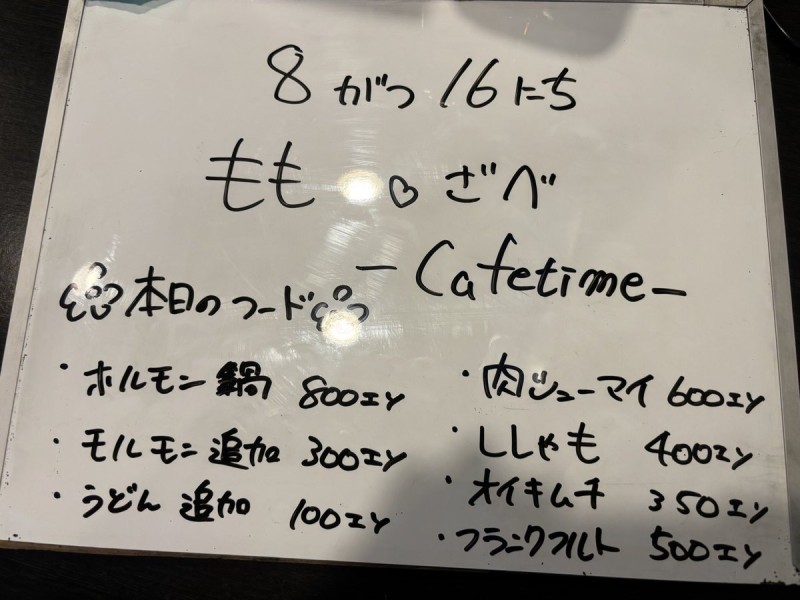 8がつ16にち
もも ♡ ざべ
- Cafetime -
本日のフード
・ホルモン鍋 800エン
・モルモン追加 300エン
・うどん追加 100エン
・肉シューマイ 600エン
・ししゃも 400エン
・オイキムチ 350エン
・フランクフルト 500エン